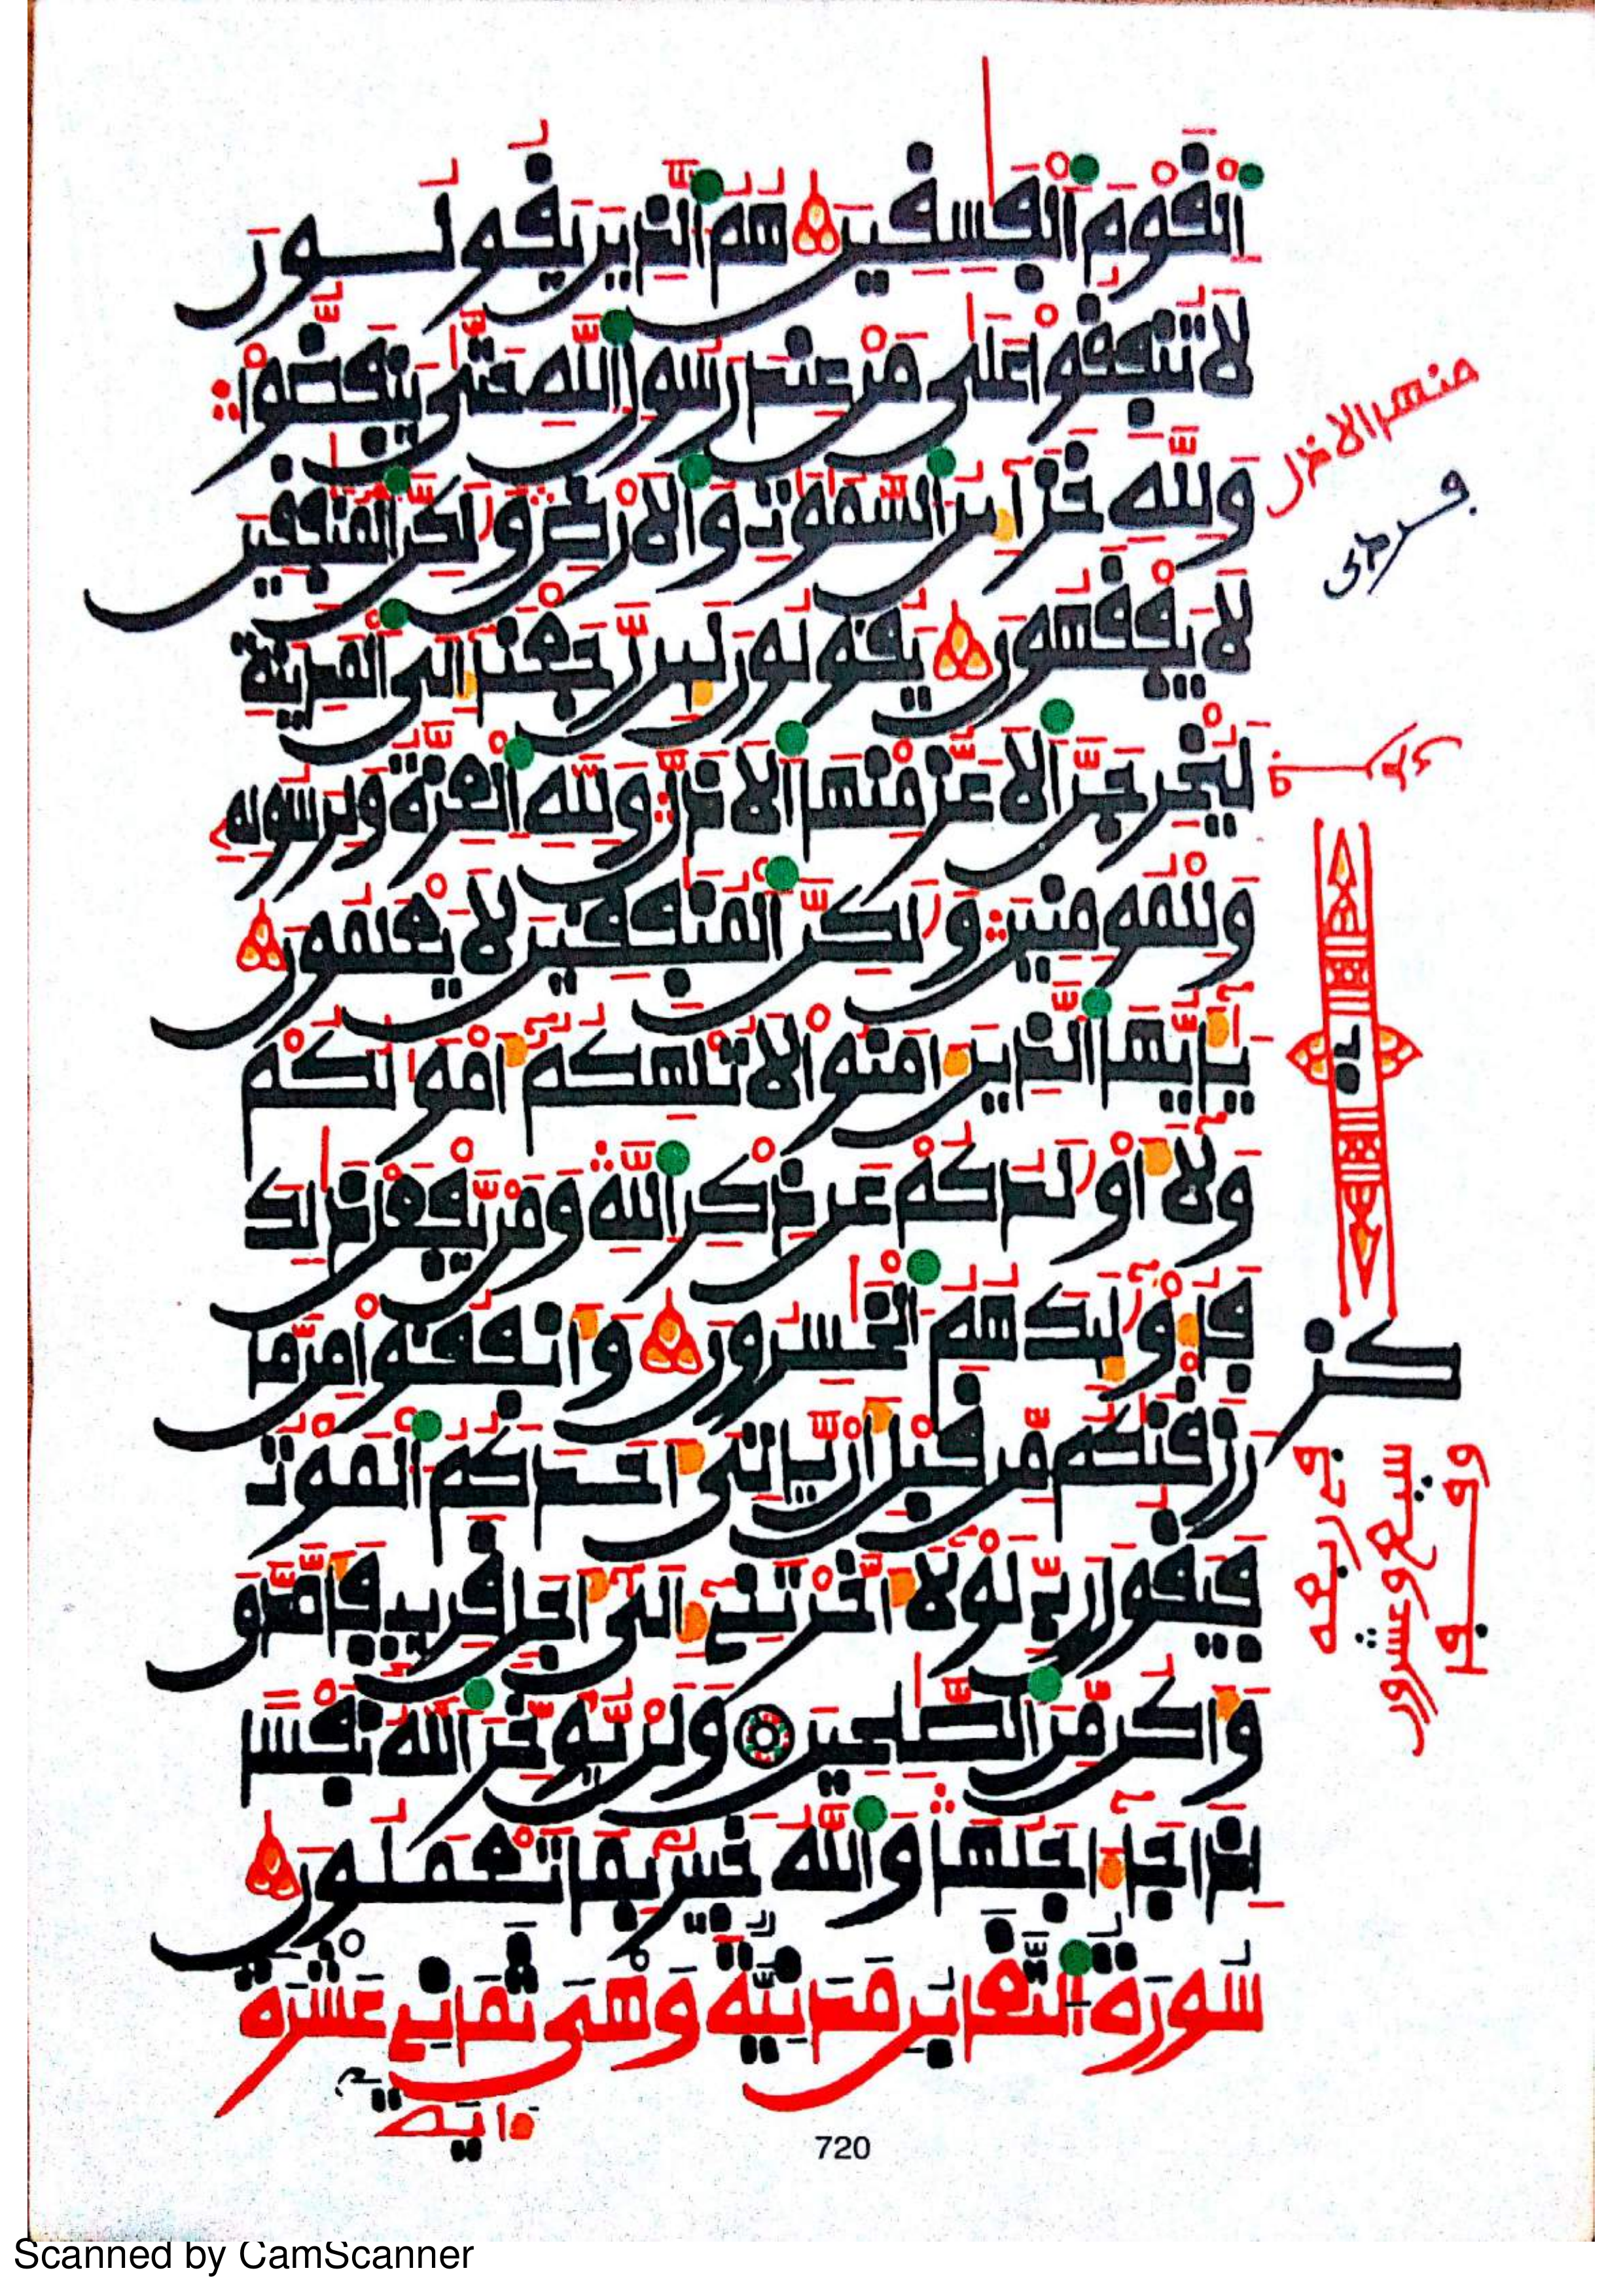 اَ۬لْقَوْمَ اَ۬لْفَٰسِقِينَ هُمُ اُ۬لذِينَ يَقُولُونَ
لَا تُنفِقُواْ عَلَىٰ مَنْ عِندَ رَسُولِ اِ۬للَّهِ حَتَّىٰ يَنفَضُّواْ
وَلِلَّهِ خَزَآئِنُ اُ۬لسَّمَٰوَٰتِ وَالَارْضِ وَلَٰكِنَّ اَ۬لْمُنَٰفِقِينَ
لَا يَفْقَهُونَ يَقُولُونَ لَئِن رَّجَعْنَآ إِلَى اَ۬لْمَدِينَةِ
لَيُخْرِجَنَّ اَ۬لَاعَزُّ مِنْهَا اَ۬لَاذَلَّ وَلِلَّهِ اِ۬لْعِزَّةُ وَلِرَسُولِهِۦ
وَلِلْمُومِنِينَ وَلَٰكِنَّ اَ۬لْمُنَٰفِقِينَ لَا يَعْلَمُونَ
يَٰٓأَيُّهَا اَ۬لذِينَ ءَامَنُواْ لَا تُلْهِكُمُۥٓ أَمْوَٰلُكُمْ
وَلَآ أَوْلَٰدُكُمْ عَن ذِكْرِ اِ۬للَّهِ وَمَنْ يَّفْعَلْ ذَٰلِكَ
فَأُوْلَٰٓئِكَ هُمُ اُ۬لْخَٰسِرُونَ وَأَنفِقُواْ مِن مَّا
رَزَقْنَٰكُم مِّن قَبْلِ أَنْ يَّاتِيَ أَحَدَكُمُ اُ۬لْمَوْتُ
فَيَقُولَ رَبِّ لَوْلَآ أَخَّرْتَنِےٓ إِلَىٰٓ أَجَلٍ قَرِيبٍ فَأَصَّدَّقَ
وَأَكُن مِّنَ اَ۬لصَّٰلِحِينَ وَلَنْ يُّوَخِّرَ اَ۬للَّهُ نَفْسًا
اِذَا جَآءَ اجَلُهَا وَاللَّهُ خَبِيرٌۢ بِمَا تَعْمَلُونَ
سُورَةُ اُ۬لتَّغَابُنِ مَدَنِيَّةٌ وَهْيَ ثَمَانِے عَشْرَةَ
ءَايَةً
منها الاذل
كز
720
Scanned by CamScanner